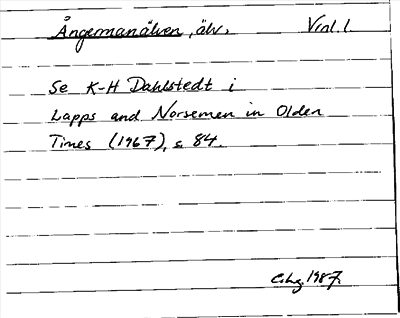 Ångermanälven, älv. Vnl. l.
Se K-H Dahlstedt i
Lapps and Norsemen in Olden
Times (1967), s 84.
1987.